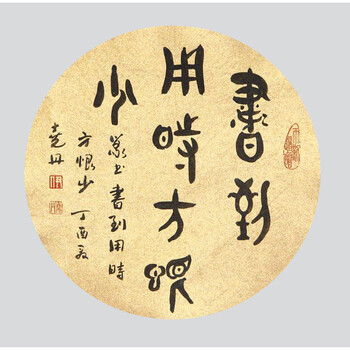 書到
用時方恨
少
篆書書到用時
方恨少丁酉夏
尧丹